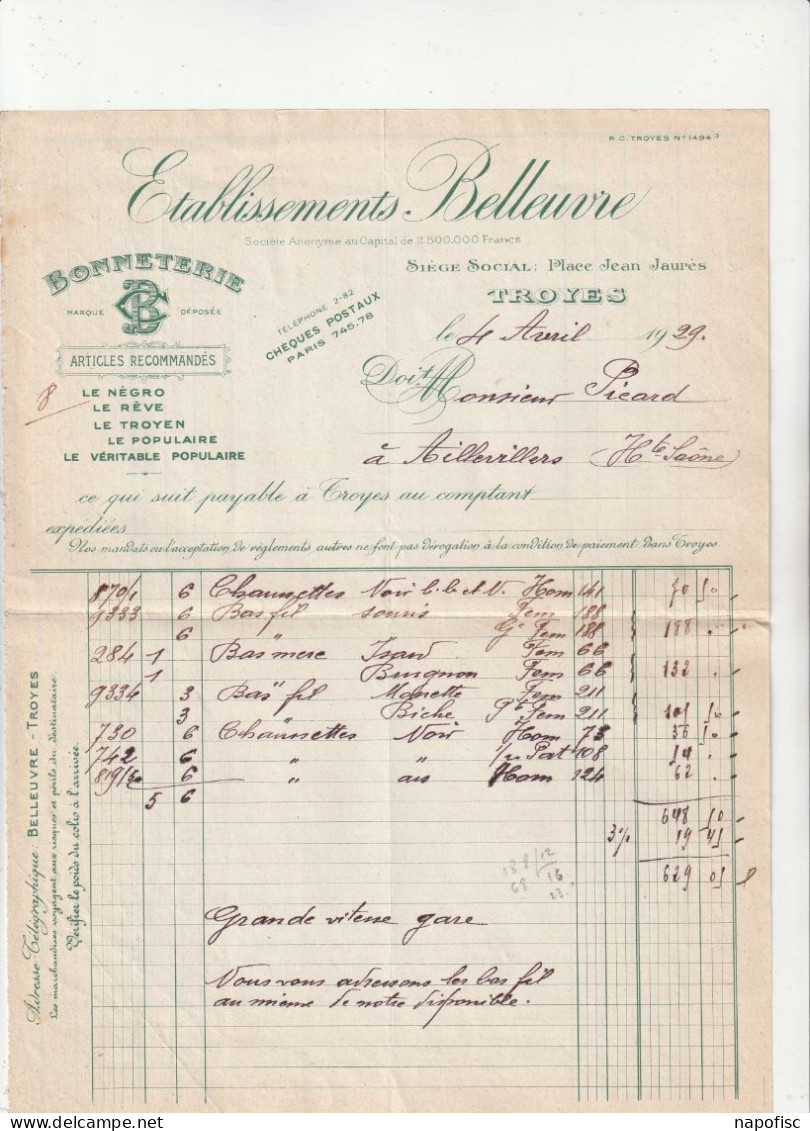 R.C. TROYES N° 1494³
Etablissements Belleuvre
Société Anonyme au Capital de 2.500.000 Francs
BONNETERIE
MARQUE DÉPOSÉE
SIÈGE SOCIAL: Place Jean Jaurès
TROYES
TÉLÉPHONE 2-82
CHÈQUES POSTAUX
PARIS 745.78
le 4 Avril 1929.
ARTICLES RECOMMANDÉS
8
LE NÉGRO
LE RÊVE
LE TROYEN
LE POPULAIRE
LE VÉRITABLE POPULAIRE
Doit Monsieur Picard
à Aillevillers (Hte Saône)
ce qui suit payable à Troyes au comptant
expédiées
Nos mandats ou l'acceptation de règlements autres ne font pas dérogation à la condition de paiement dans Troyes.
870/1 6 Chaussettes Noir b.b. et N. Hom 141 70 50
9333 6 Bas fil souris Fem 188
6 " Ge Fem 188 188 .
284 1 Bas mere Fem 66
1 Fem 66 132 .
9334 3 Bas fil Fem 211
3 " Biche Pte Fem 211 101 50
730 6 Chaussettes Noir Hom 73 36 50
742 6 " " 108
819/ 6 " Hom 124 62 .
5 6
648 50
3% 19 45
629 05
188/12
68 16
Grande vitesse gare
Nous vous adressons les bas fil
au mieux de notre disponible.
Adresse Télégraphique: BELLEUVRE - TROYES
Les marchandises voyagent aux risques et périls du destinataire.
Vérifier le poids du colis à l'arrivée.
delcampe.net
napofisc